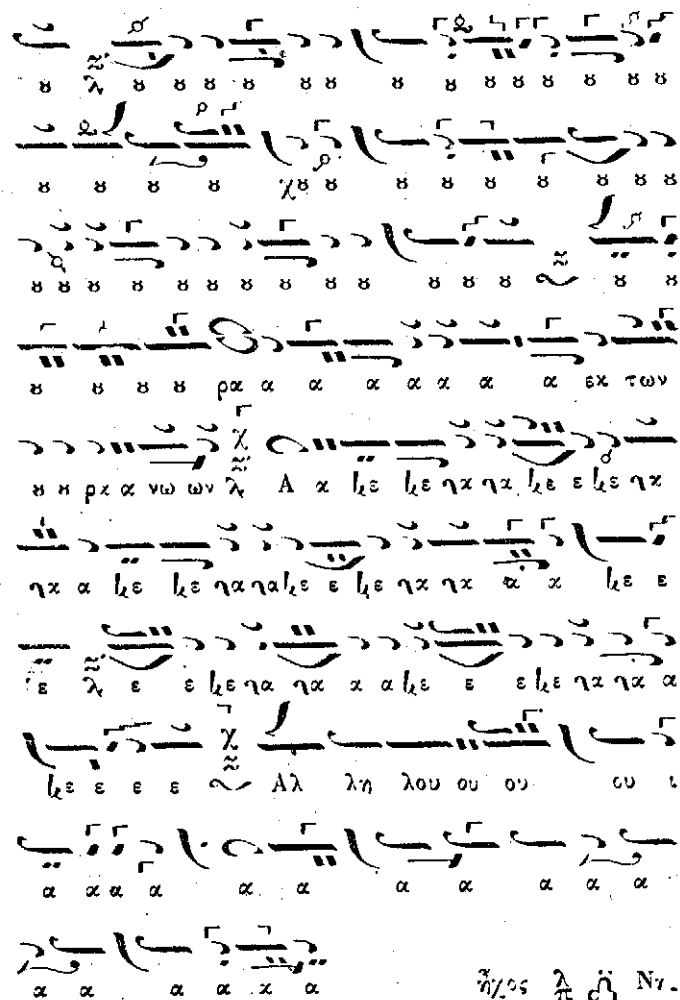 ȣ λ ȣ ȣ ȣ ȣ ȣ ȣ ȣ ȣ ȣ ȣ ȣ ȣ ȣ
ȣ ȣ ȣ ȣ χ ȣ ȣ ȣ ȣ ȣ ȣ ȣ ȣ ȣ
ȣ ȣ ȣ ȣ ȣ ȣ ȣ ȣ ȣ ȣ ȣ ȣ ȣ ȣ ȣ
ȣ ȣ ȣ ȣ ρα α α α α α α α εκ των
ȣ ȣ ρα α νω ων χ λ Α α τε τε να να τε ε τε να
να α τε τε να να τε ε τε να να α α τε ε
ε λ ε ε τε να να α α τε ε ε τε να να α
τε ε ε ε χ Αλ λη λου ου ου ου
α α α α α α α α α α α
α α α α α α ἦχος λ π Νη.